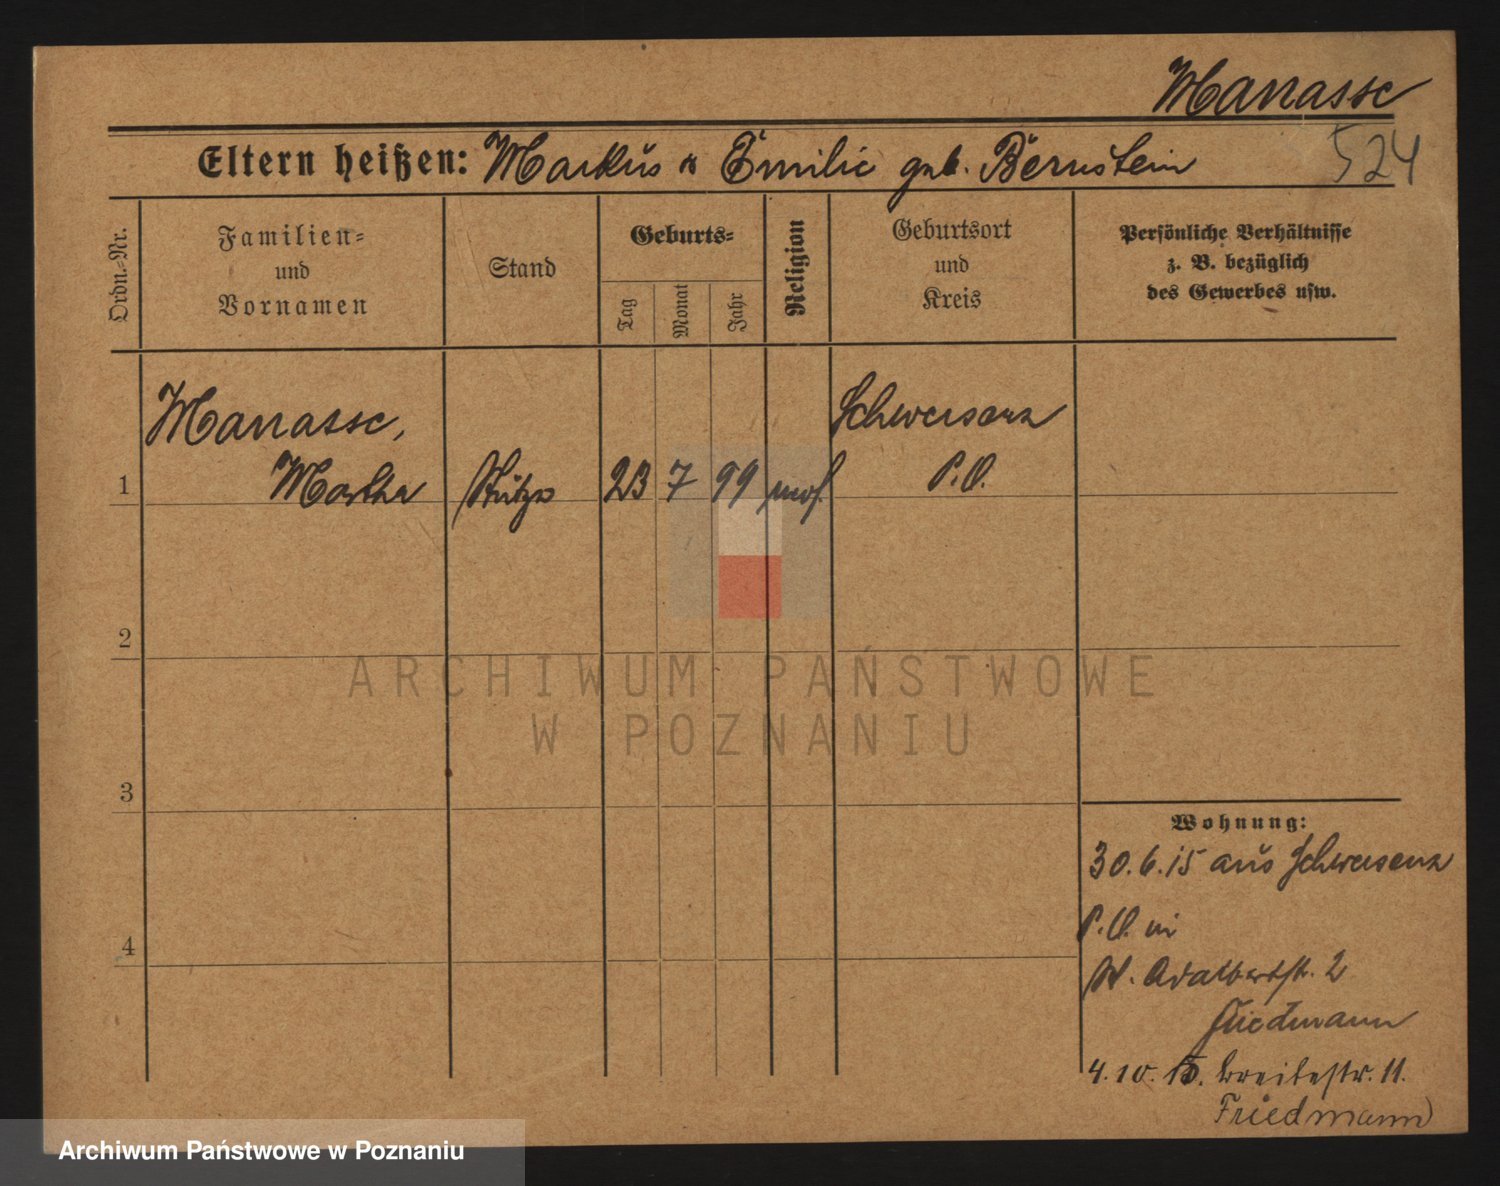 Manasse
524
Eltern heißen: Markus & Emilie geb. Bernstein
Ordn.-Nr.
Familien-
und
Vornamen
Stand
Geburts-
Tag
Monat
Jahr
Religion
Geburtsort
und
Kreis
Persönliche Verhältnisse
z. B. bezüglich
des Gewerbes usw.
Manasse, Schwersenz
1 Martha Stütze 23 7 99 mos. P. O.
2
3
4
ARCHIWUM PAŃSTWOWE
W POZNANIU
Wohnung:
30.6.15 aus Schwersenz
P. O. in
St. Adalbertstr. 2
Friedmann
4.10.15. Breitestr. 11.
Friedmann
Archiwum Państwowe w Poznaniu